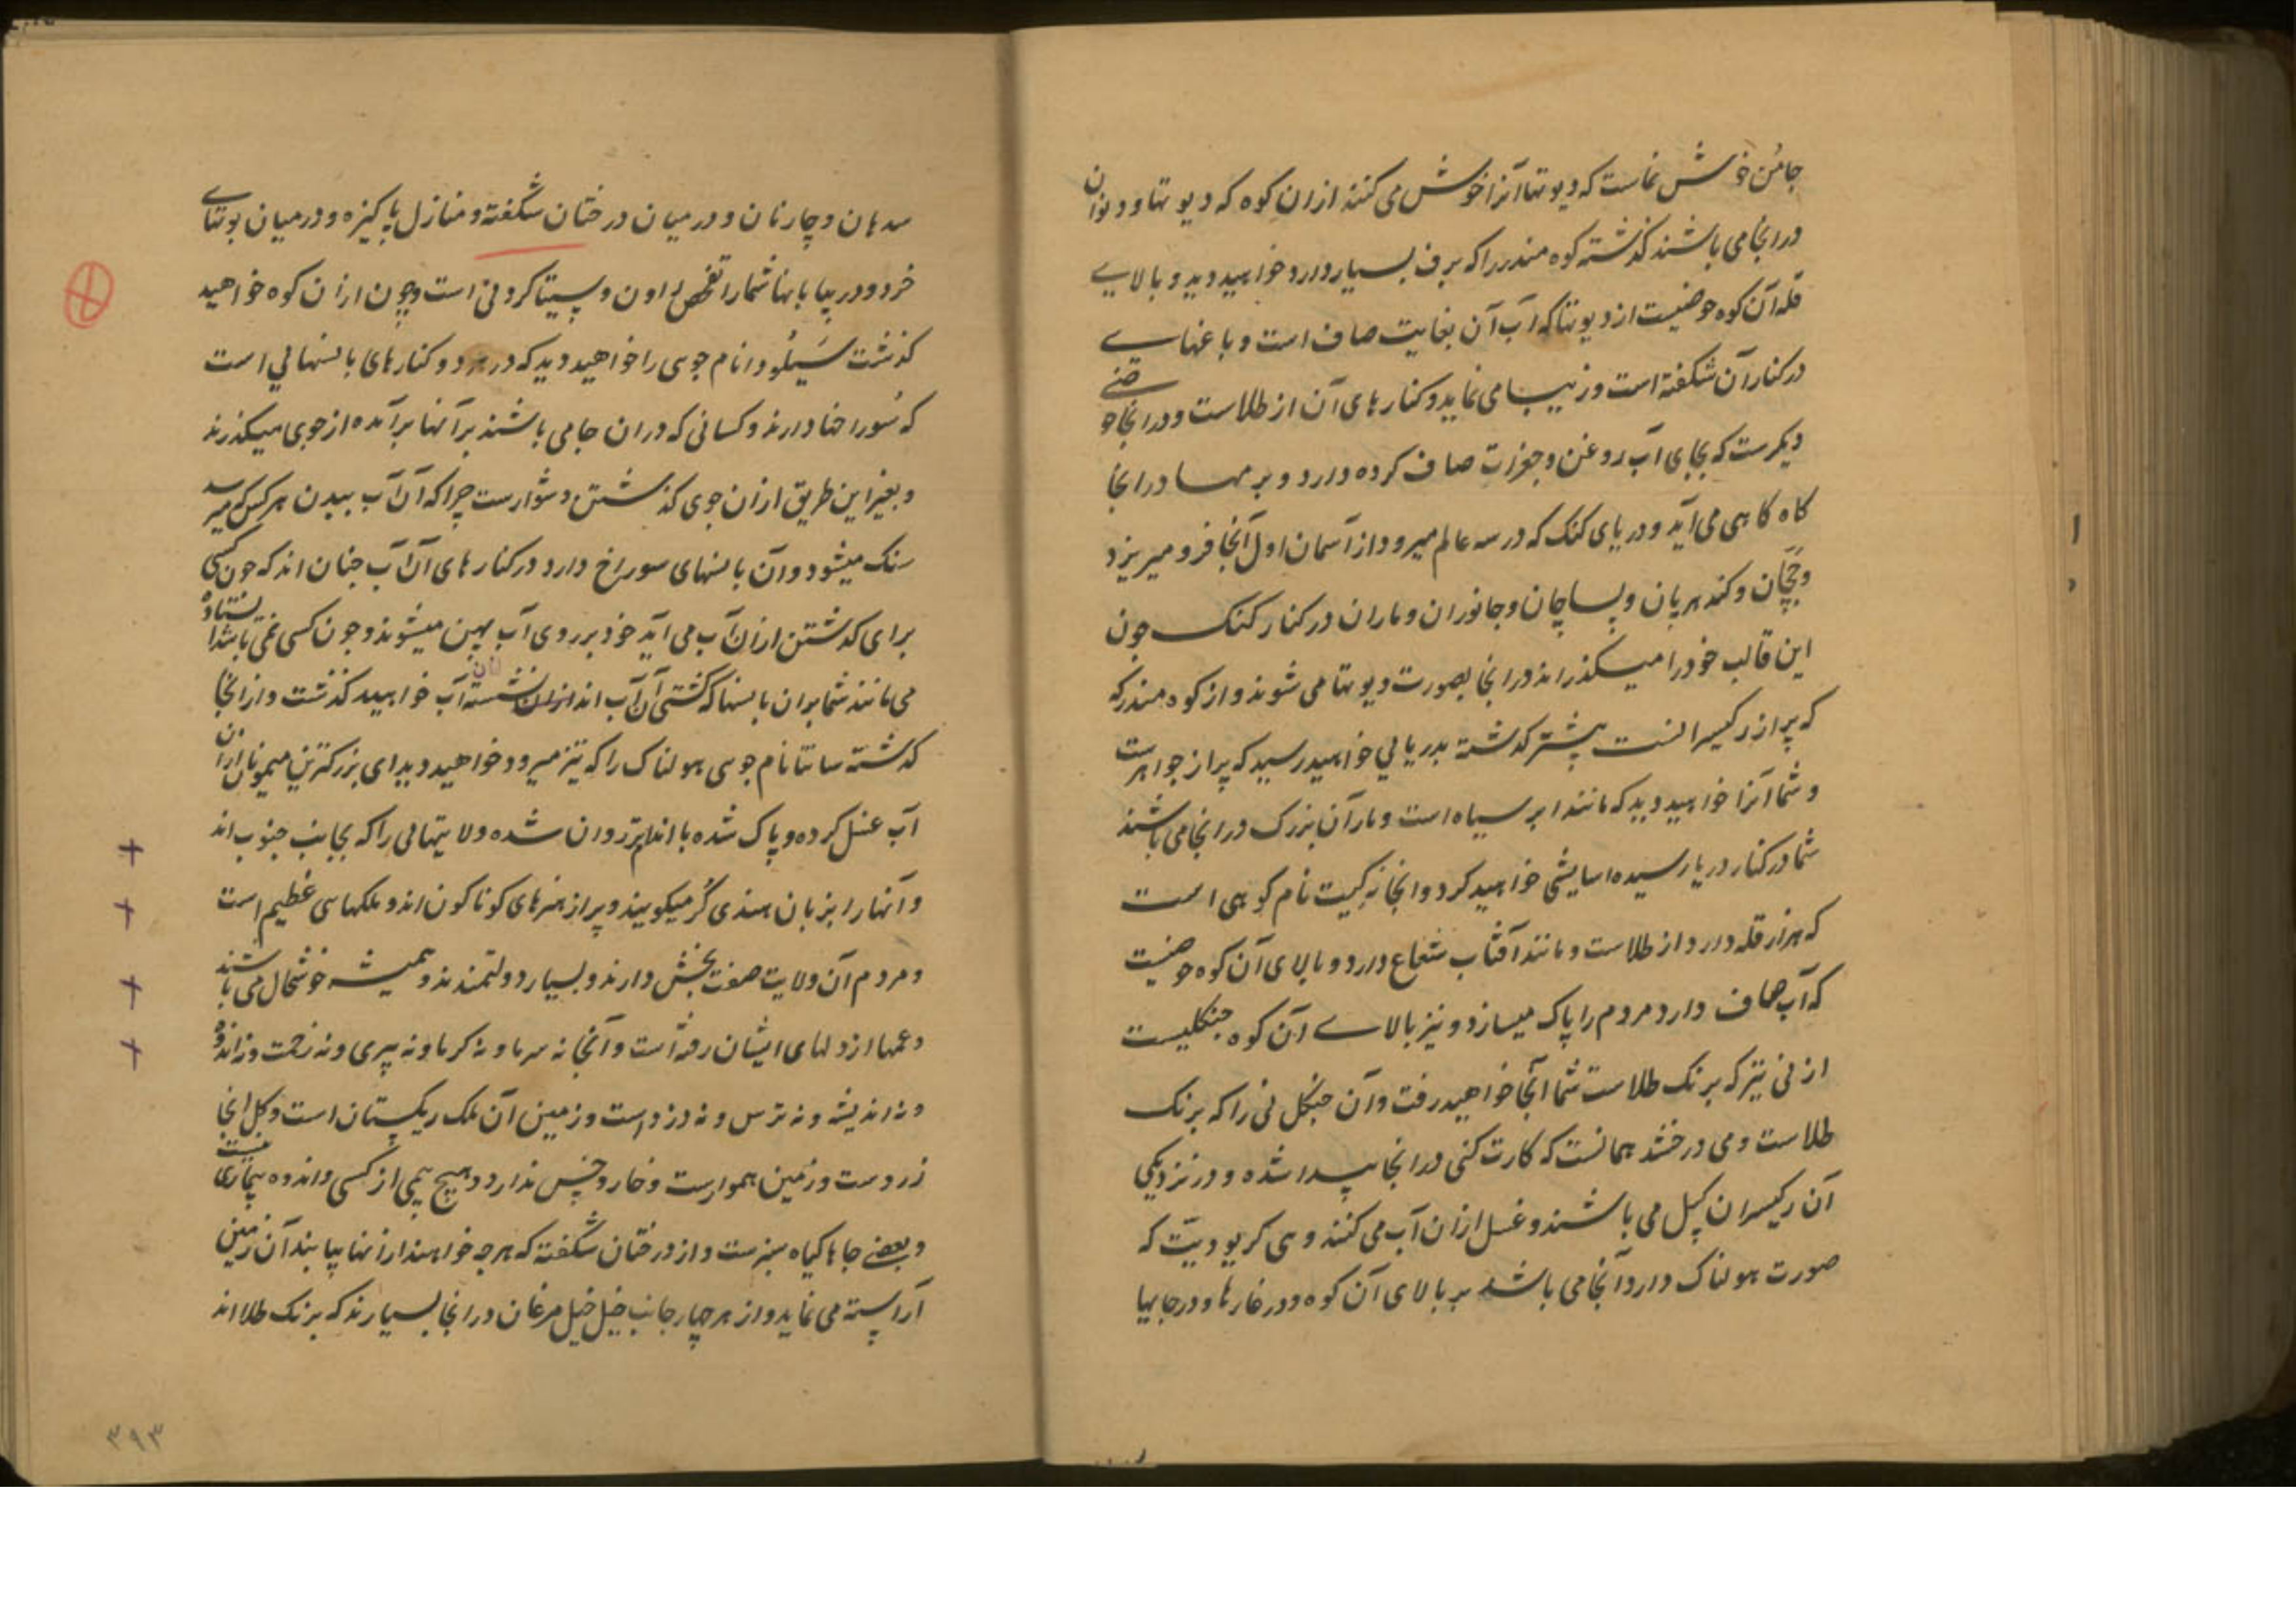 جامُن خوش نماست که دیوتها آنرا خوش می کنند ازان کوه که دیوتها و دیوان
درانجا می باشند گذشته کوه مندر را که برف بسیار دارد خواهید دید و بالاے
قله آن کوه حوضیست از دیوتها که آب آن بغایت صاف است و باغهاے
در کنار آن شکفته است و زیبا می نماید و کنارهای آن از طلاست و درانجا حوضے
دیگرست که بجای آب روغن و جغرات صاف کرده دارد و برمها درانجا
گاه گاهی می آید و دریای کنک که در سه عالم میرود از آسمان اول آنجا فرو میریزد
و جچّان و کندهرپان و پساچان و جانوران و ماران در کنار کنک چون
این قالب خود را میگذرانند درانجا بصورت دیوتها می شوند و از کوه مندر که
که پر از رکهیسرانست پیشتر گذشته بدریائی خواهید رسید که پر از جواهرست
و شما آنرا خواهید دید که مانند ابر سیاه است و ماران بزرک درانجا می باشند
شما در کنار دریا رسیده اسایشی خواهید کرد و انجا نام کوهی است
که هزار قله دارد از طلاست و مانند آفتاب شعاع دارد و بالای آن کوه حوضیست
که آب صاف دارد مردم را پاک میسازد و نیز بالاے آن کوه جنکلیست
از نی تیز که برنک طلاست شما آنجا خواهید رفت و آن جنکل نی را که برنک
طلاست و می درخشد همانست که کارت کئی درانجا پیدا شده و در نزدیکی
آن رکیسران کپل می باشند و غسل ازان آب می کنند و هی کریو دیتّ که
صورت هولناک دارد آنجا می باشد بر بالای آن کوه و در غارها و در جایها
سدهان و چارنان و در میان درختان شکفته و منازل پاکیزه و در میان بوتهاے
خرد و در بیابانها شما را تفحص راون و سیتا کردنی است و چون ازان کوه خواهید
گذشت سَیلُودا نام جوی را خواهید دید که در هر دو کنارهای بانسهائی است
که سُوراخها دارند و کسانی که دران جا می باشند بر آنها بر آمده از جوی میگذرند
و بغیر این طریق ازان جوی گذشتن دشوارست چرا که آن آب ببدن هر کس که میرسد
سنک میشود و آن بانسهای سوراخ دارد در کنارهای آن آب چنان اند که چون کسی
برای گذشتن ازان آب می آید خود بر روی آب پهن میشوند و چون کسی نمی باشد ایستاده
می مانند شما بران بانسها که کشتی آن آب اند ازان نشسته آب خواهید گذشت و ازانجا
گذشته سانتا نام جوی هولناک را که تیز میرود خواهید دید ای بزرکترین میمونان ازان
آب غسل کرده و پاک شده با اندام تر روان شده ولایتهائی را که بجانب جنوب اند
و آنها را بزبان هندی کُر میکویند و پر از هنرهای کوناکون اند و ملکهای عظیم است
و مردم آن ولایت صفت بخش دارند و بسیار دولتمندند و همیشه خوشحال می باشند
و غمها از دلهای ایشان رفته است و آنجا نه سرما و نه کرما و نه پیری و نه زحمت و نه اندوه
و نه اندیشه و نه ترس و نه درد است و زمین آن ملک ریکستان است و کل انجا
زردست و زمین هموارست و خار و خس ندارد و هیچ بیمی از کسی و اندوه بیماری نیست
و بعضے جاها کیاه سبزست و از درختان شکفته که هر چه خواهند ازانها بیابند آن زمین
آراسته می نماید و از هر چهار جانب خیل خیل مرغان درانجا بسیارند که برنک طلا اند
۳۹۳